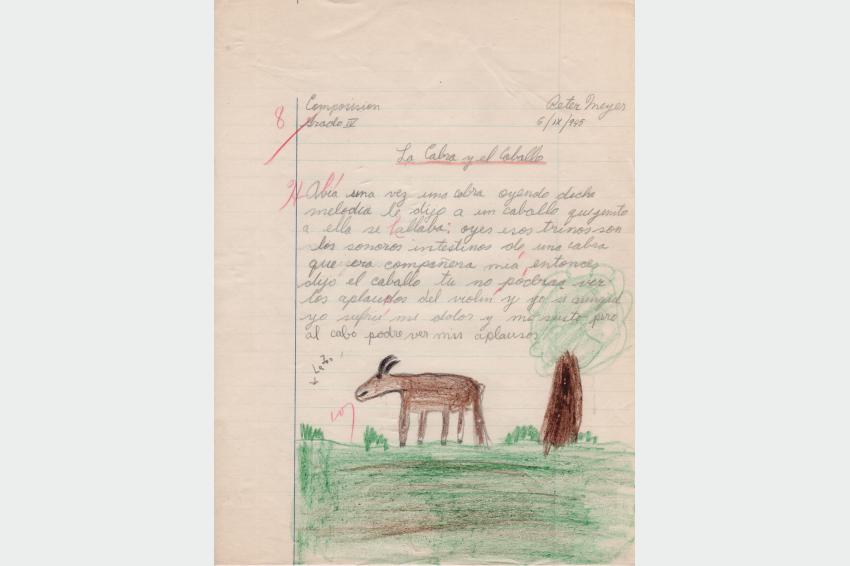 8
Composision
Grado IV
Peter Meyer
6/IX/945
La Cabra y el Caballo
H Abía una vez una cabra oyendo dicha
melodia le dijo a un caballo que junto
a ella se hallaba; oyes esos trinos son
los sonoros intestinos de una cabra
que era compañera mia, entonces
dijo el caballo tu no podras ver
los aplausos del violin y yo si aunque
yo sufrí mi dolor y mi pero
al cabo podre ver mis aplausos